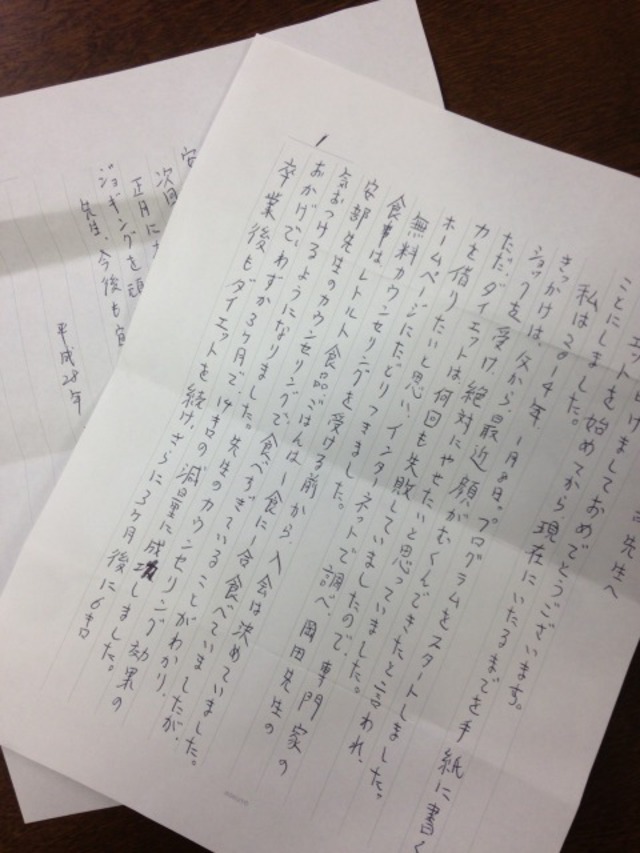 先生へ
けましておめでとうございます。
エットを始めてから、現在にいたるまでを手紙に書く
ことにしました。
私は2014年、1月8日。プログラムをスタートしました。
きっかけは、父から、最近顔がむくんできたと言われ、
ショックを受け、絶対にやせたいと思っていました。
ただ、ダイエットは何回も失敗していましたので、専門家の
力を借りたいと思い、インターネットで調べ、岡田先生の
ホームページにたどりつきました。
無料カウンセリングを受ける前から、入会は決めていました。
食事は、レトルト食品、ごはんは1食に1合食べていましたが、
安部先生のカウンセリングで、食べすぎていることがわかり、
気おつけるようになりました。先生のカウンセリング効果の
おかげで、わずか3ヶ月で、14キロの減量に成功しました。
卒業後もダイエットを続け、さらに3ヶ月後に6キロ
安
次回
正月に
ジョギングを頑
先生、今後も宜
平成28年